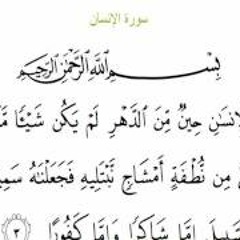 سورة الإنسان
بِسْمِ اللَّهِ الرَّحْمَٰنِ الرَّحِيمِ
حِينٌ مِّنَ الدَّهْرِ لَمْ يَكُن شَيْئًا
مِن نُّطْفَةٍ أَمْشَاجٍ نَّبْتَلِيهِ فَجَعَلْنَاهُ
إِمَّا شَاكِرًا وَإِمَّا كَفُورًا ٣